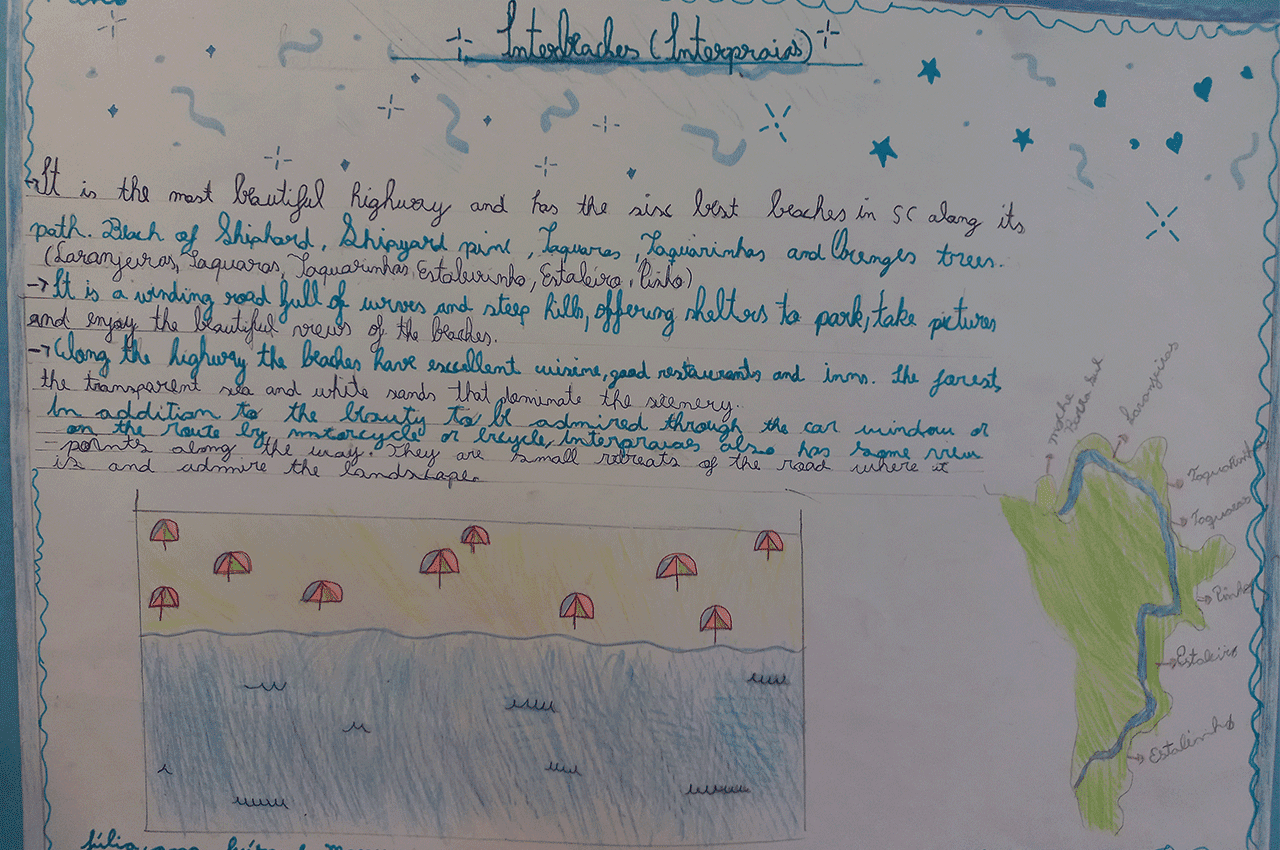 Interbeaches (Interpraias)
→ It is the most beautiful highway and has the six best beaches in SC along its
path. Beach of Shiphard, Shipyard pine, Taquaras, Taquarinhas and Orenges trees.
(Laranjeiras, Taquaras, Taquarinhas, Estaleirinho, Estaleiro, Pinho)
→ It is a winding road full of curves and steep hills, offering shelters to park, take pictures
and enjoy the beautiful views of the beaches.
→ Along the highway the beaches have excellent cuisine, good restaurants and inns. The forest,
the transparent sea and white sands that dominate the scenery.
In addition to the beauty to be admired through the car window or
on the route by motorcycle or bicycle, Interpraias also has some view
points along the way. They are small retreats of the road where it
is and admire the landscape.
Barra Sul
Laranjeiras
Taquarinhas
Taquaras
Pinho
Estaleiro
Estalinho
Júlia